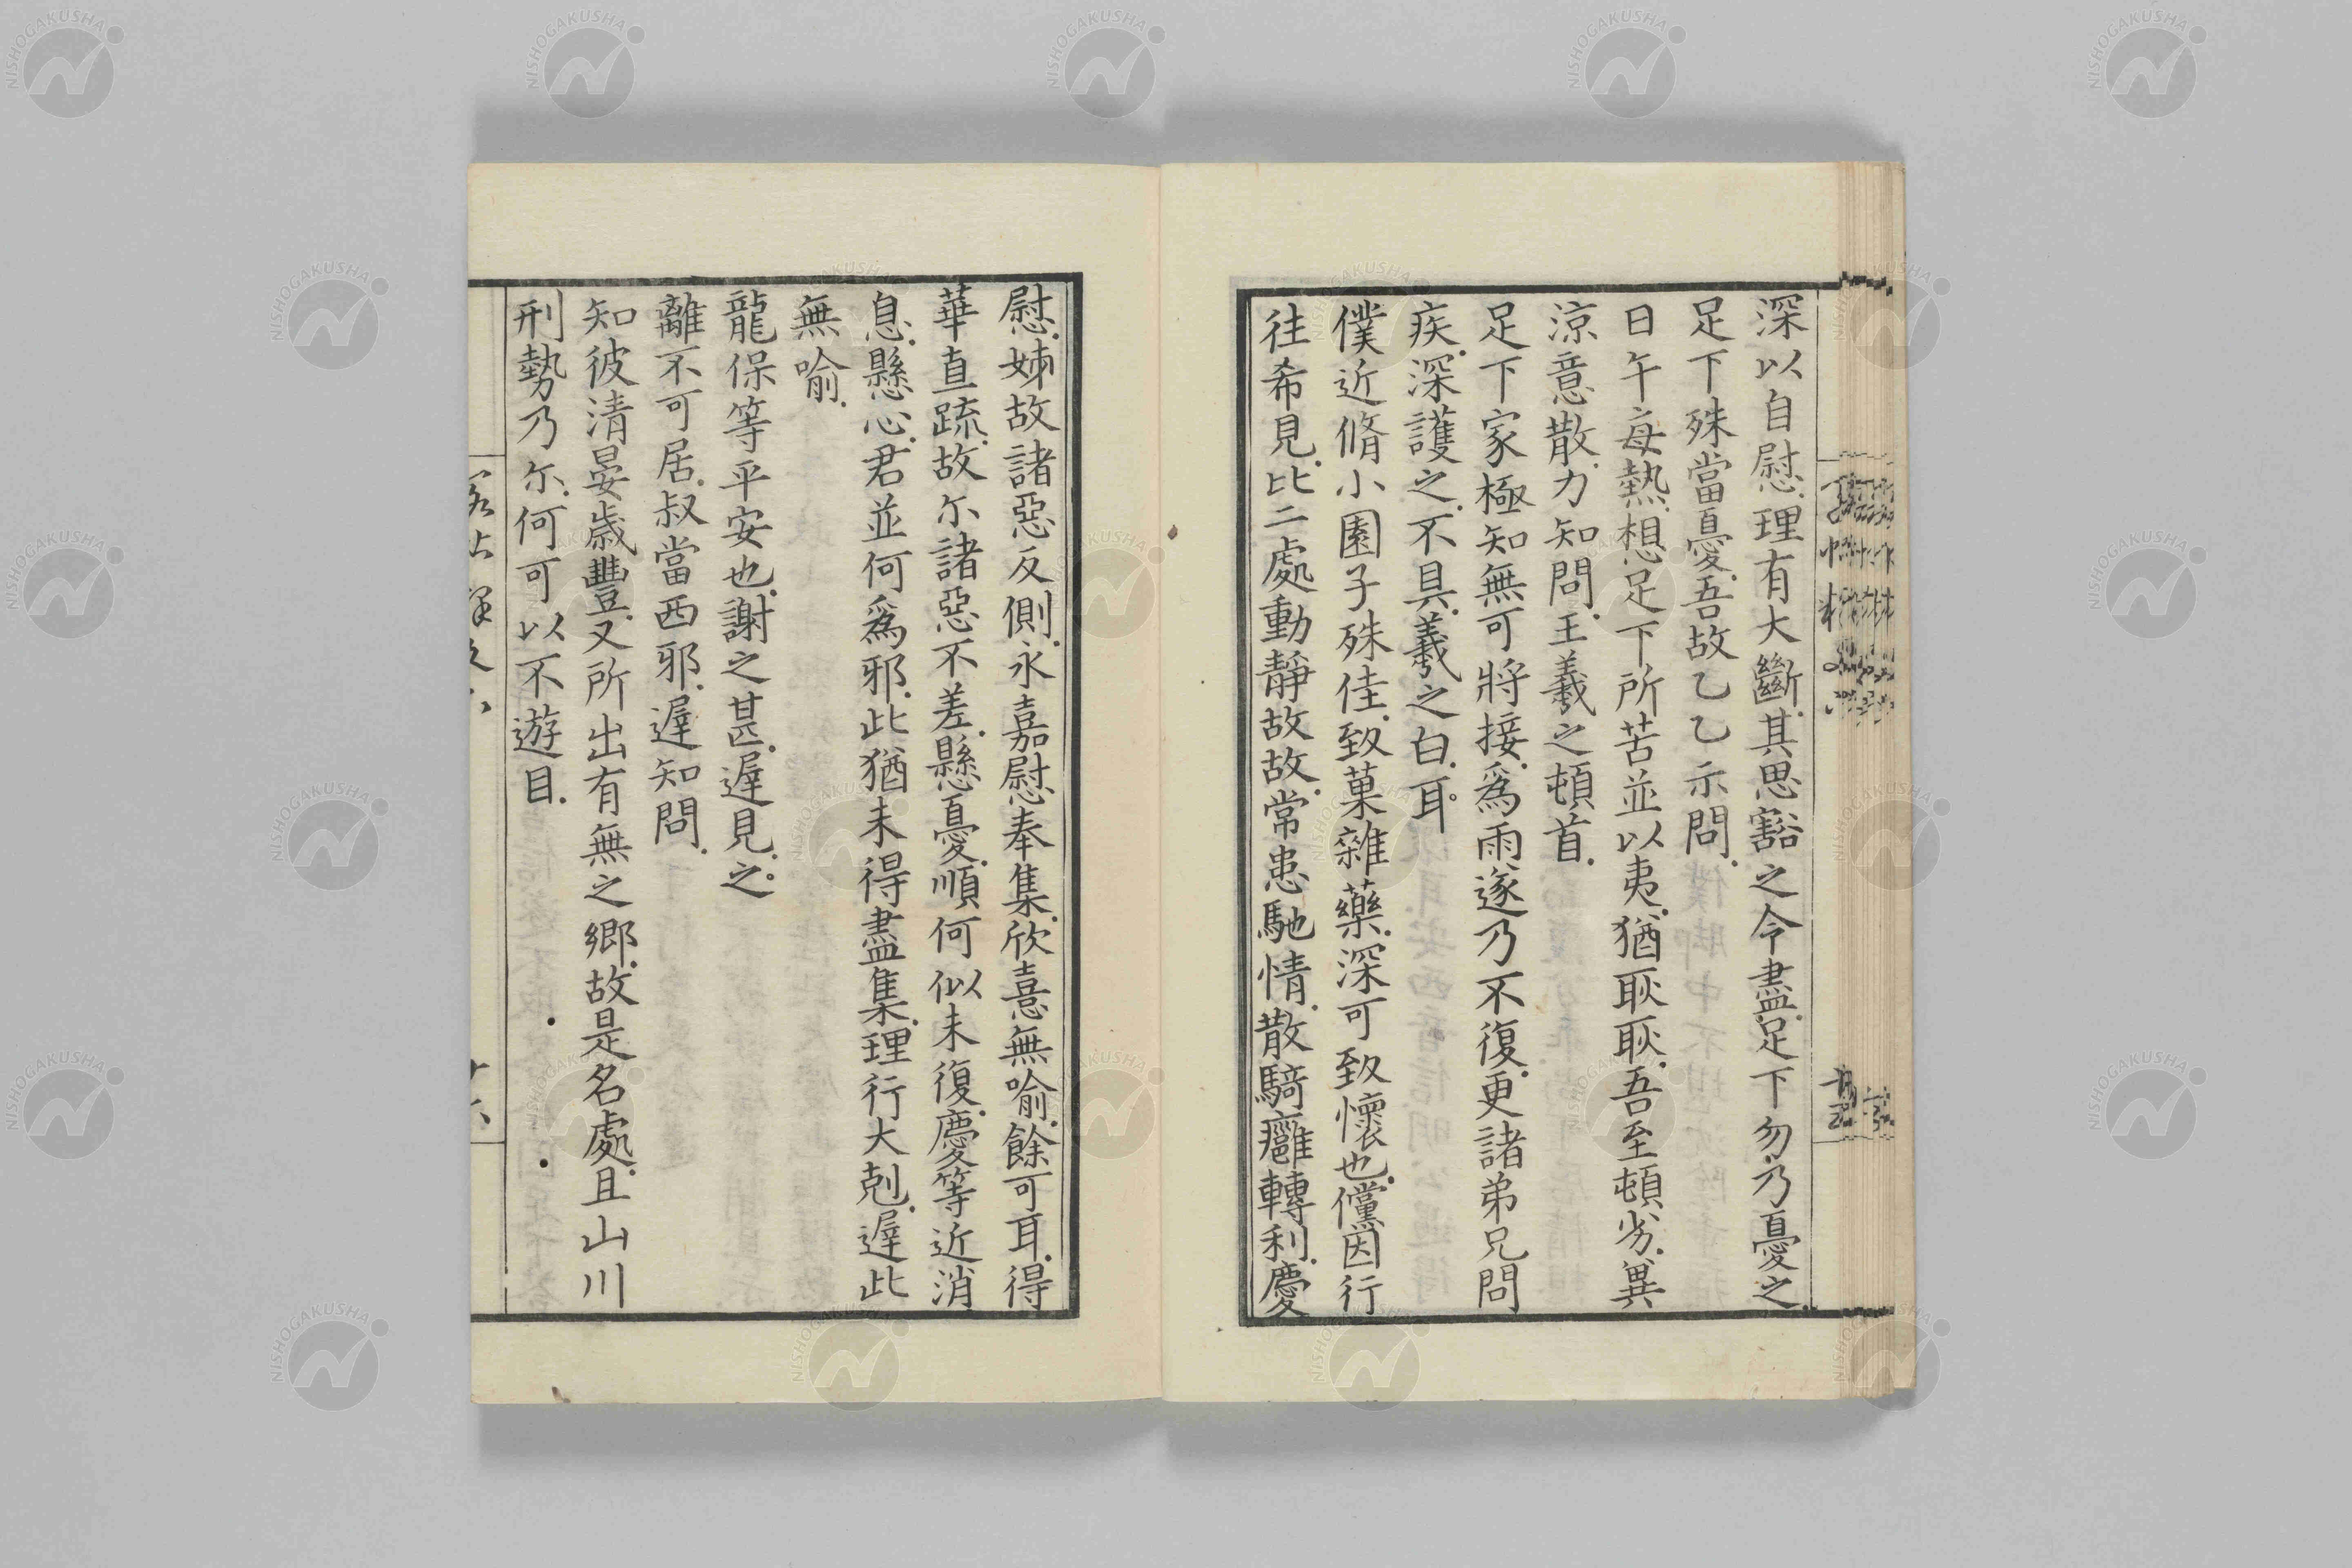 深以自慰.理有大斷.其思豁之今盡.足下勿乃憂之.
足下殊當憂.吾故乙乙示問.
日午每熱.想足下所苦並以夷.猶耿耿.吾至頓劣.異
涼意散.力知問.王羲之頓首.
足下家極知無可將接.爲雨遂乃不復.更諸弟兄問
疾.深護之.不具.羲之白.耳.
僕近脩小園子殊佳.致菓雜藥.深可致懷也.儻因行
往希見.比二處動靜故故.常患馳情.散騎癰轉利.慶
慰.姊故諸惡反側.永嘉慰奉集.欣憙無喻.餘可耳.得
華直疏.故尔諸惡不差.懸憂.順何似未復.慶等近消
息.懸心.君並何爲邪.此猶未得盡集.理行大剋.遲此
無喻.
龍保等平安也.謝之甚.遲見.之.
離不可居.叔當西邪.遲知問.
知彼清晏歲豐.又所出有無之鄉.故是名處.且山川
刑勢乃尔.何可以不遊目.